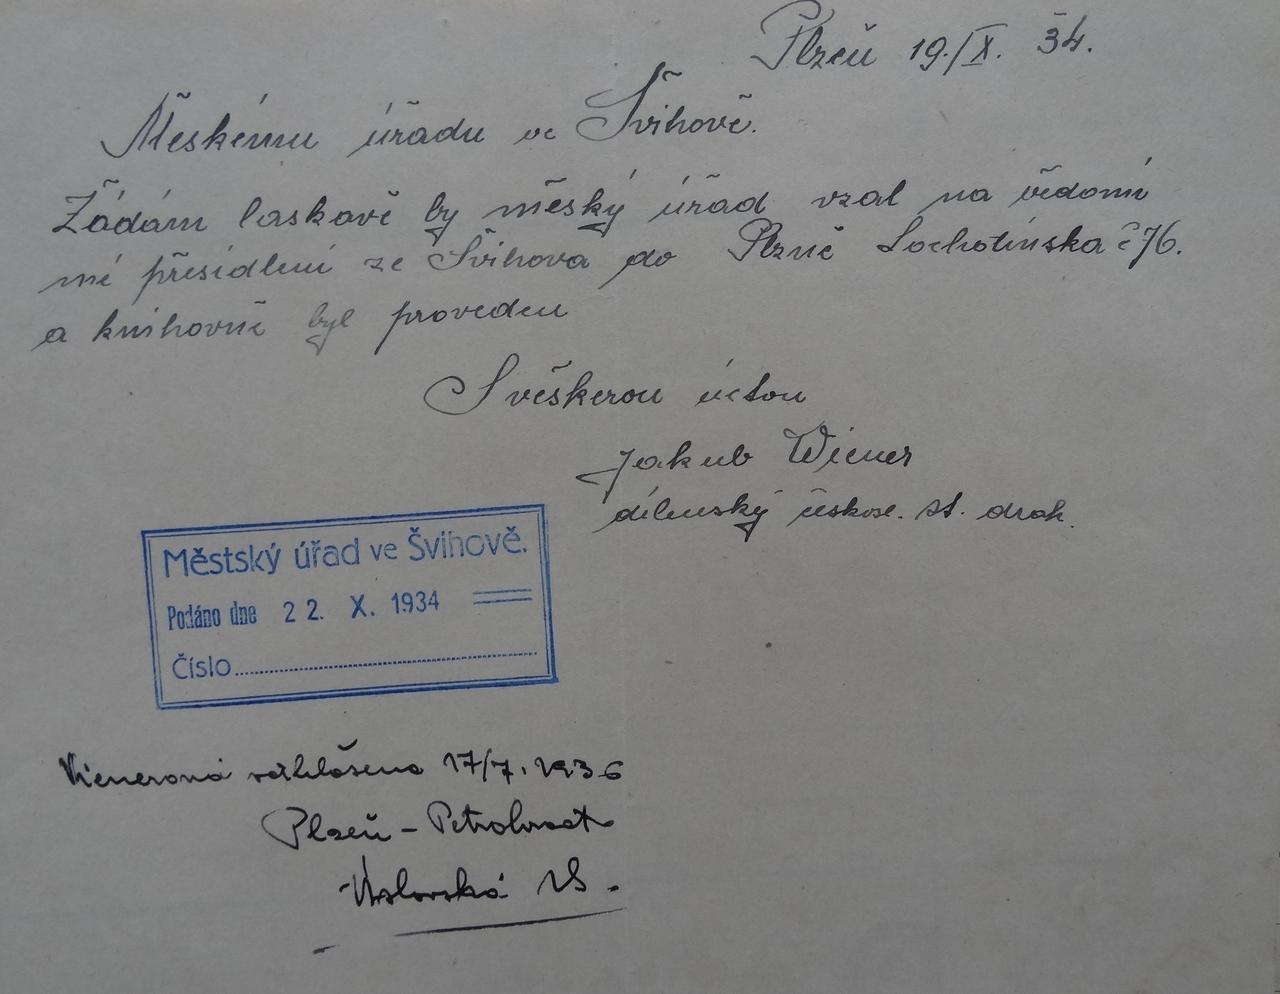 Plzeň 19./IX. 34.
Měskému úřadu ve Švihově.
Žádám laskavě by měský úřad vzal na vědomí
mé přesídlení ze Švihova do Plzně Lochotínska č 76.
a knihovně byl proveden
S věškerou úctou
Jakub Wiener
dílenský úskoc. st. drah.
Městský úřad ve Švihově.
Podáno dne 22. X. 1934
Číslo
Wienerová odhlášena 17/7. 1936
Plzeň - Petrohrad
Úslavská 15.